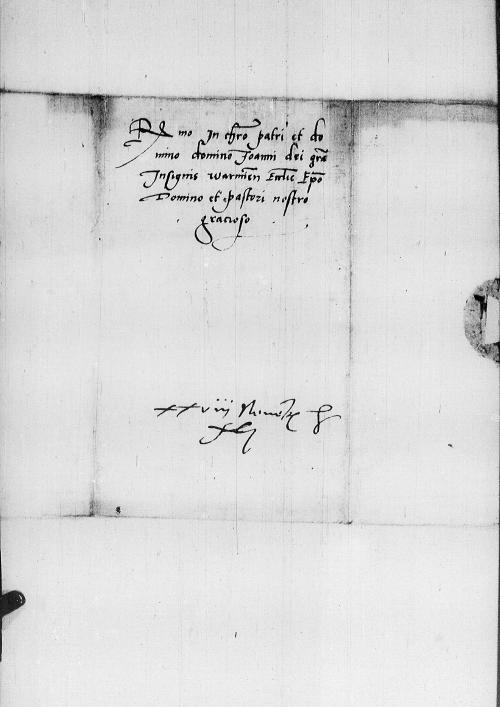 Rmo In chro patri et do
mino domino Joanni dei gra
Insignis warmien Ecclie Epo
Domino et pastori nostro
gracioso
xxviii Novembr
xli